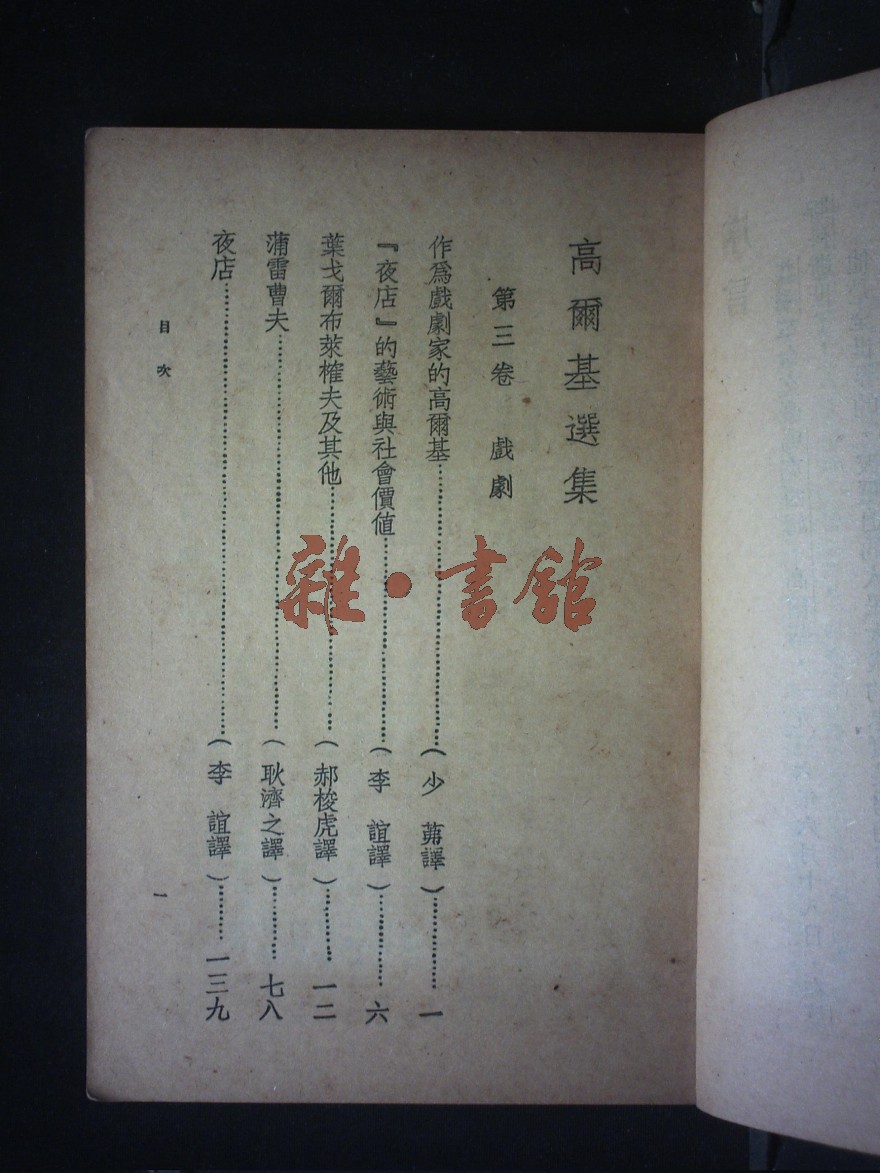 高爾基選集
第三卷 戲劇
作為戲劇家的高爾基……(少 茀譯)……一
『夜店』的藝術與社會價值……(李 誼譯)……六
葉戈爾布萊榷夫及其他……(郝梭虎譯)……一二
蒲雷曹夫……(耿濟之譯)……七八
夜店……(李 誼譯)……一三九
目次
一
雜·書館
序言